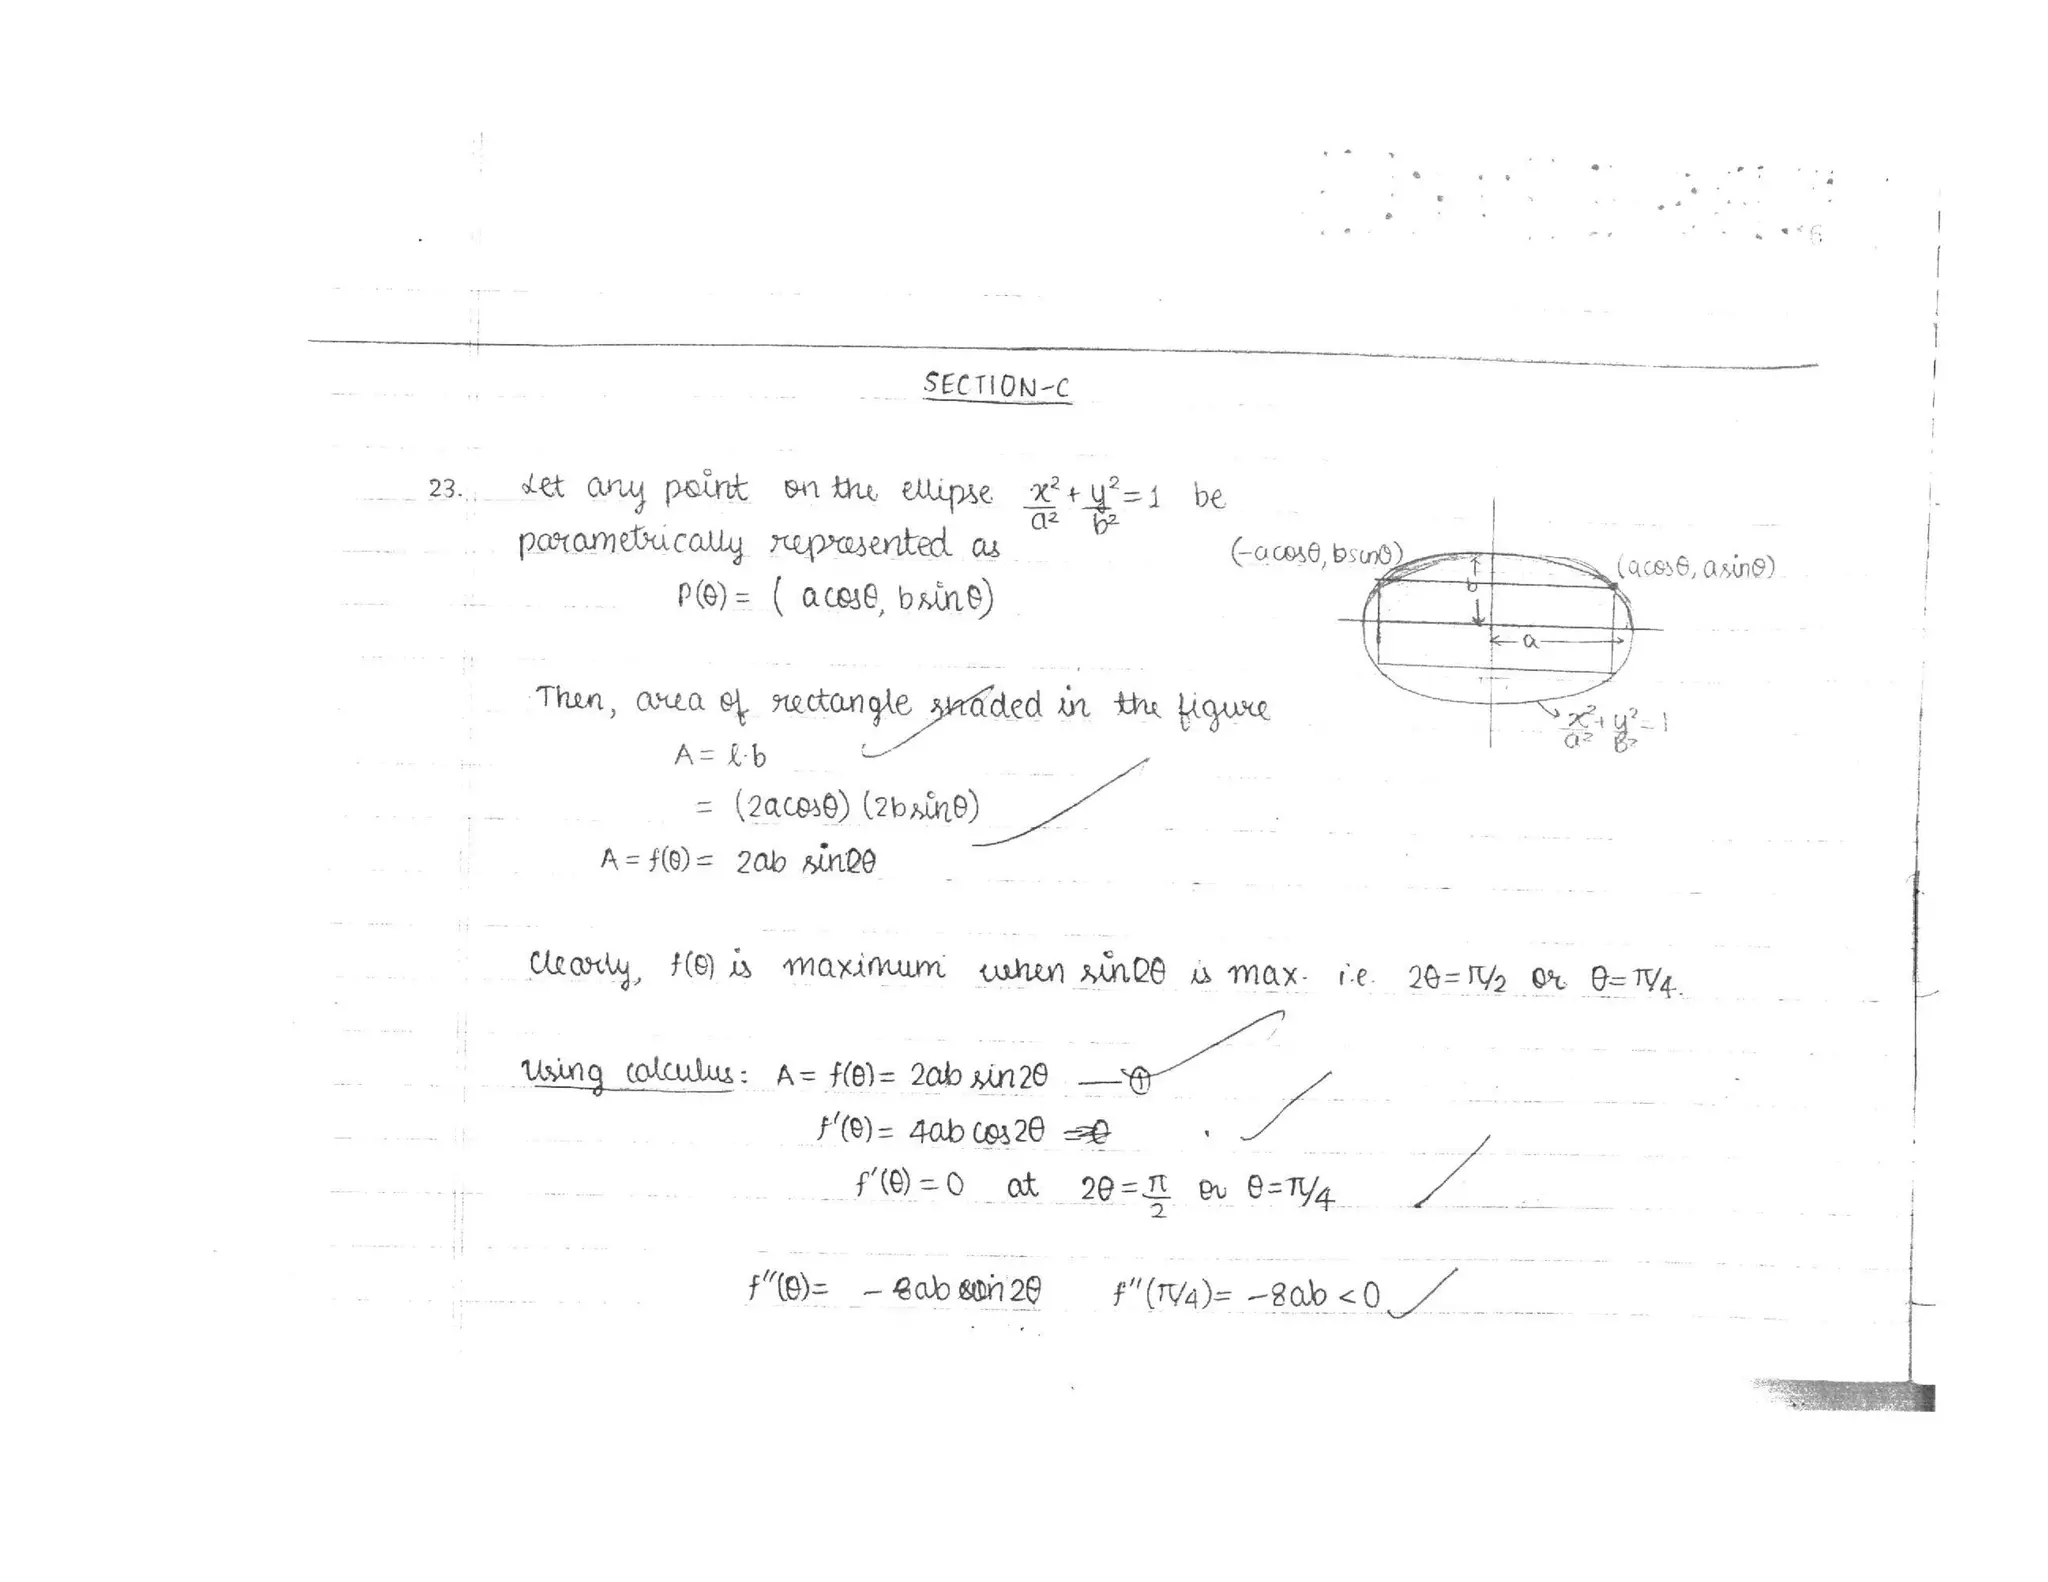 SECTION-C
23. Let any point on the ellipse x²/a² + y²/b² = 1 be
parametrically represented as
P(θ) = ( acosθ, bsinθ)
(-acosθ, bsinθ)
(acosθ, asinθ)
b
a
x²/a² + y²/b² = 1
Then, area of rectangle shaded in the figure
A = l·b
= (2acosθ) (2bsinθ)
A = f(θ) = 2ab sin2θ
Clearly, f(θ) is maximum when sin2θ is max. i.e. 2θ = π/2 or θ = π/4.
Using calculus: A = f(θ) = 2ab sin2θ — ①
f'(θ) = 4ab cos2θ
f'(θ) = 0 at 2θ = π/2 or θ = π/4
f''(θ) = - 8ab sin 2θ f''(π/4) = -8ab < 0